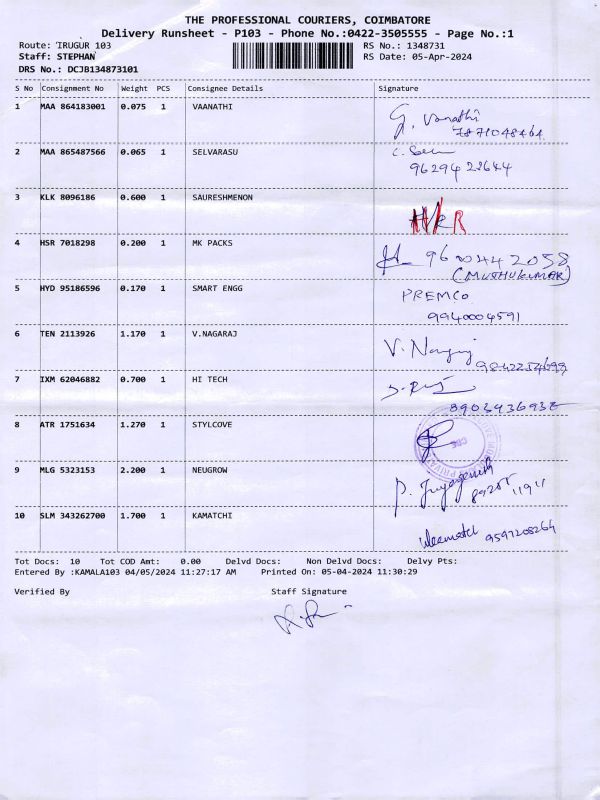 THE PROFESSIONAL COURIERS, COIMBATORE
Delivery Runsheet - P103 - Phone No.:0422-3505555 - Page No.:1
Route: IRUGUR 103 RS No.: 1348731
Staff: STEPHAN RS Date: 05-Apr-2024
DRS No.: DCJB134873101
S No Consignment No Weight PCS Consignee Details Signature
1 MAA 864183001 0.075 1 VAANATHI G. Vanathi
7871048464
2 MAA 865487566 0.065 1 SELVARASU
3 KLK 8096186 0.600 1 SAURESHMENON
4 HSR 7018298 0.200 1 MK PACKS 9600442058
(MUTHUKUMAR)
5 HYD 95186596 0.170 1 SMART ENGG PREMCO
9940004591
6 TEN 2113926 1.170 1 V.NAGARAJ V. Nagaraj
7 IXM 62046882 0.700 1 HI TECH
8903936932
8 ATR 1751634 1.270 1 STYLCOVE
9 MLG 5323153 2.200 1 NEUGROW
10 SLM 343262700 1.700 1 KAMATCHI 9597208264
Tot Docs: 10 Tot COD Amt: 0.00 Delvd Docs: Non Delvd Docs: Delvy Pts:
Entered By :KAMALA103 04/05/2024 11:27:17 AM Printed On: 05-04-2024 11:30:29
Verified By Staff Signature